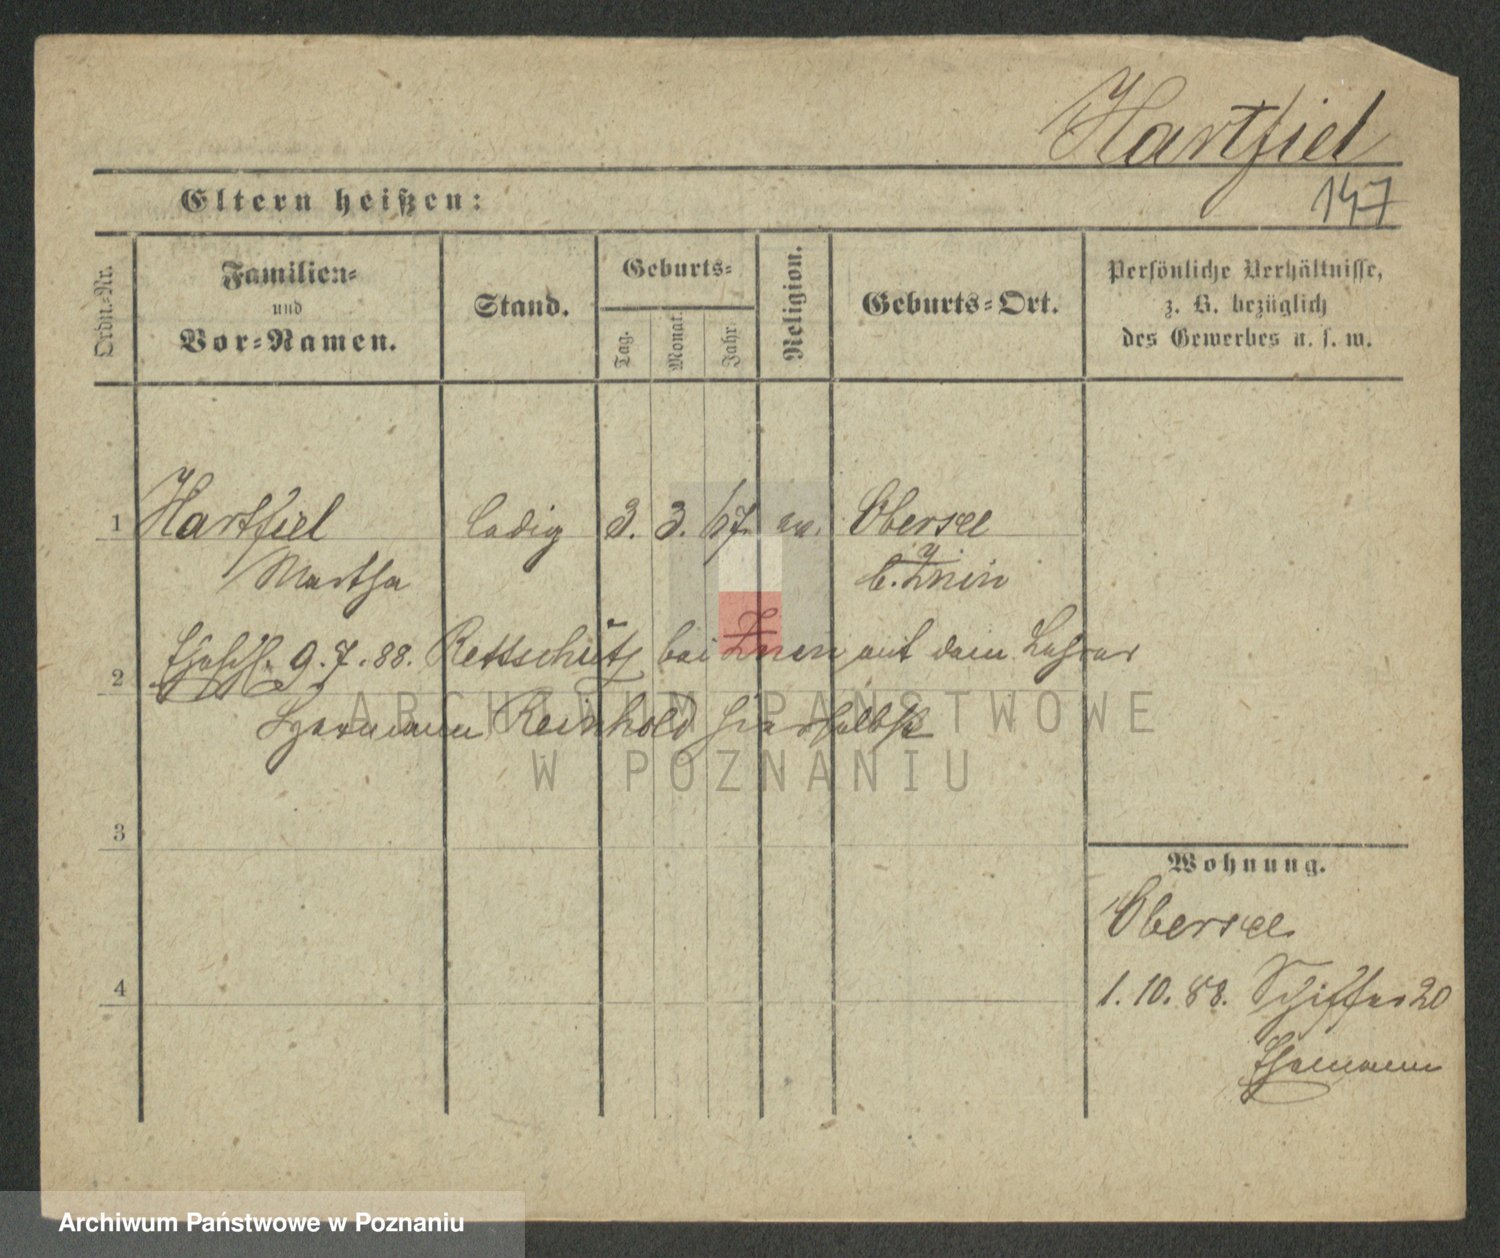 Hartfiel
Eltern heißen:
147
Ordn.-Nr.
Familien-
und
Vor-Namen.
Stand.
Geburts-
Tag.
Monat.
Jahr.
Religion.
Geburts-Ort.
Persönliche Verhältnisse,
z. B. bezüglich
des Gewerbes u. s. w.
1 Hartfiel ledig 3. 3. 67. ev. Obersee
Martha b. Znin
2 9.7.88. Rettschütz bei Znin mit dem Lehrer
Hermann Reinhold hierselbst
ARCHIWUM PAŃSTWOWE
W POZNANIU
3
Wohnung.
Obersee
4
1.10.88. Schiffer 20
Ehemann
Archiwum Państwowe w Poznaniu